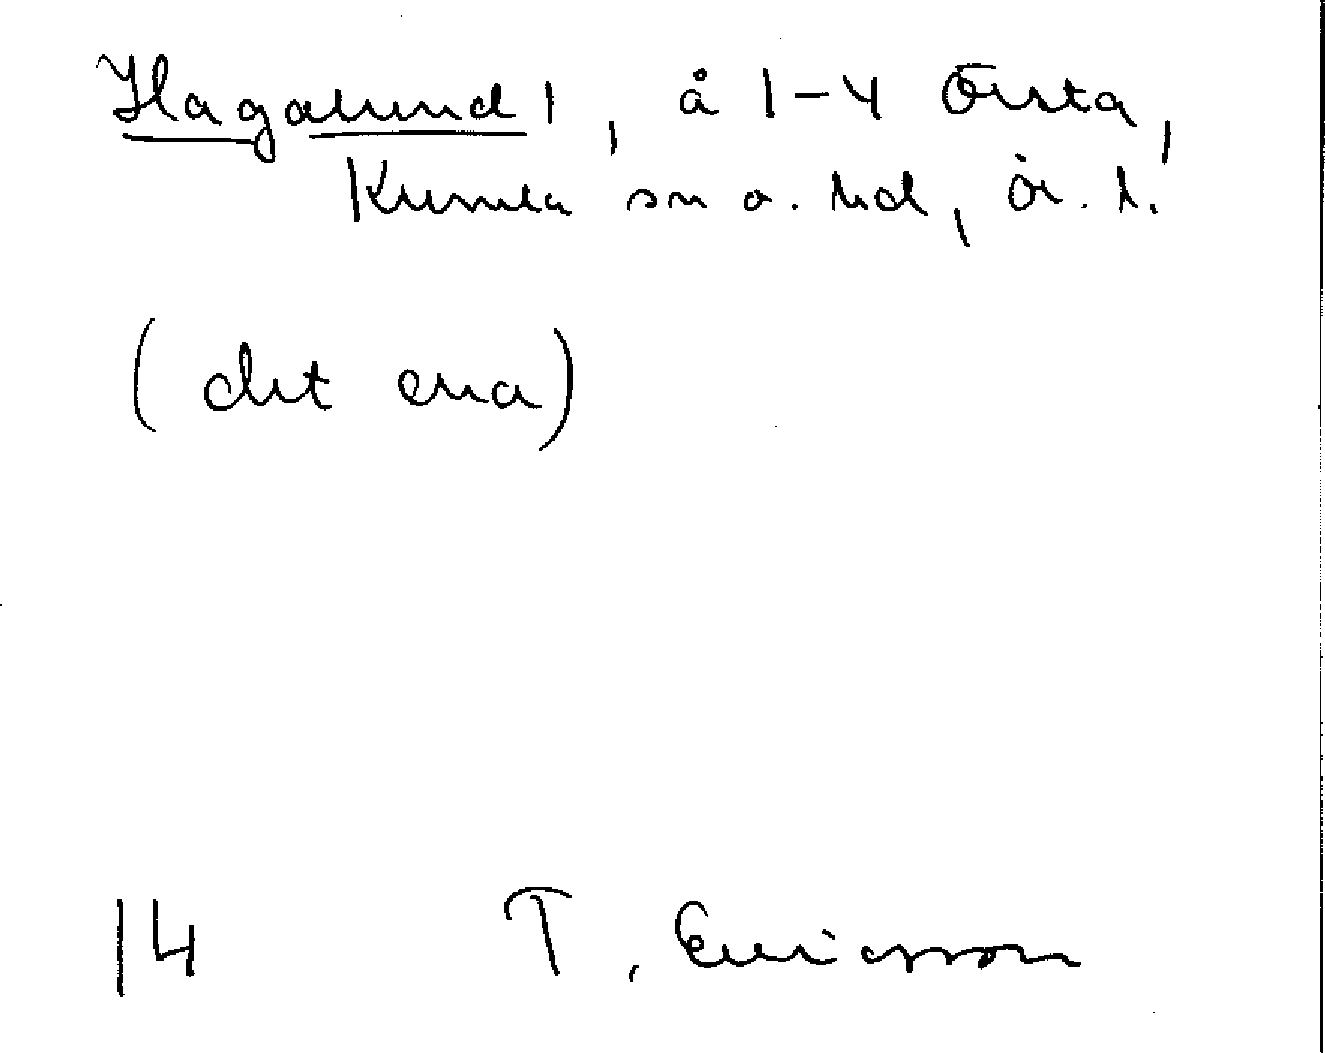 Hagalund 1, å 1-4 Örsta,
Kumla sn o. hd, Ör. l.
(det ena)
14 T. Ericsson